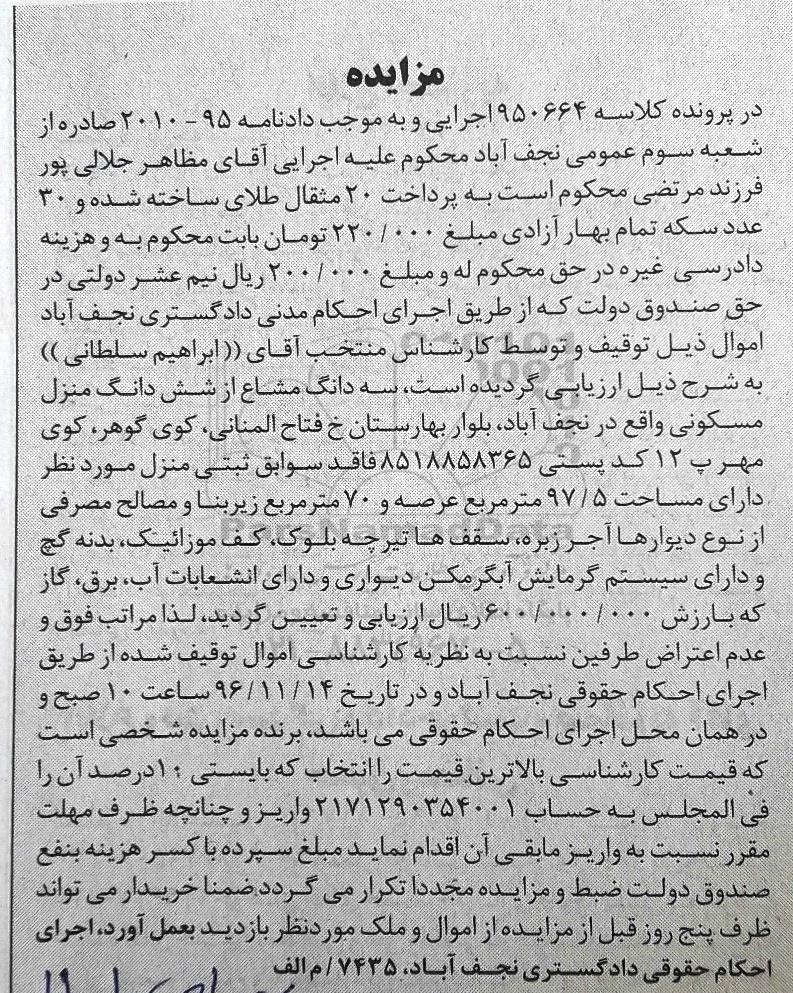 مزایده
در پرونده کلاسه ۹۵۰۶۶۴ اجرایی و به موجب دادنامه ۹۵ - ۲۰۱۰ صادره از
شعبه سوم عمومی نجف آباد محکوم علیه اجرایی آقای مظاهر جلالی پور
فرزند مرتضی محکوم است به پرداخت ۲۰ مثقال طلای ساخته شده و ۳۰
عدد سکه تمام بهار آزادی مبلغ ۲۲۰/۰۰۰ تومان بابت محکوم به و هزینه
دادرسی غیره در حق محکوم له و مبلغ ۲۰۰/۰۰۰ ریال نیم عشر دولتی در
حق صندوق دولت که از طریق اجرای احکام مدنی دادگستری نجف آباد
اموال ذیل توقیف و توسط کارشناس منتخب آقای ((ابراهیم سلطانی))
به شرح ذیل ارزیابی گردیده است، سه دانگ مشاع از شش دانگ منزل
مسکونی واقع در نجف آباد، بلوار بهارستان خ فتاح المنانی، کوی گوهر، کوی
مهر پ ۱۲ کد پستی ۸۵۱۸۸۵۸۳۶۵ فاقد سوابق ثبتی منزل مورد نظر
دارای مساحت ۹۷/۵ مترمربع عرصه و ۷۰ مترمربع زیربنا و مصالح مصرفی
از نوع دیوارها آجر زبره، سقف ها تیرچه بلوک، کف موزائیک، بدنه گچ
و دارای سیستم گرمایش آبگرمکن دیواری و دارای انشعابات آب، برق، گاز
که بارزش ۶۰۰/۰۰۰/۰۰۰ ریال ارزیابی و تعیین گردید، لذا مراتب فوق و
عدم اعتراض طرفین نسبت به نظریه کارشناسی اموال توقیف شده از طریق
اجرای احکام حقوقی نجف آباد و در تاریخ ۹۶/۱۱/۱۴ ساعت ۱۰ صبح و
در همان محل اجرای احکام حقوقی می باشد، برنده مزایده شخصی است
که قیمت کارشناسی بالاترین قیمت را انتخاب که بایستی ۱۰درصد آن را
فی المجلس به حساب ۲۱۷۱۲۹۰۳۵۴۰۰۱ واریز و چنانچه ظرف مهلت
مقرر نسبت به واریز مابقی آن اقدام نماید مبلغ سپرده با کسر هزینه بنفع
صندوق دولت ضبط و مزایده مجددا تکرار می گردد ضمنا خریدار می تواند
ظرف پنج روز قبل از مزایده از اموال و ملک موردنظر بازدید بعمل آورد، اجرای
احکام حقوقی دادگستری نجف آباد، ۷۴۳۵/م الف
ParsNamadData